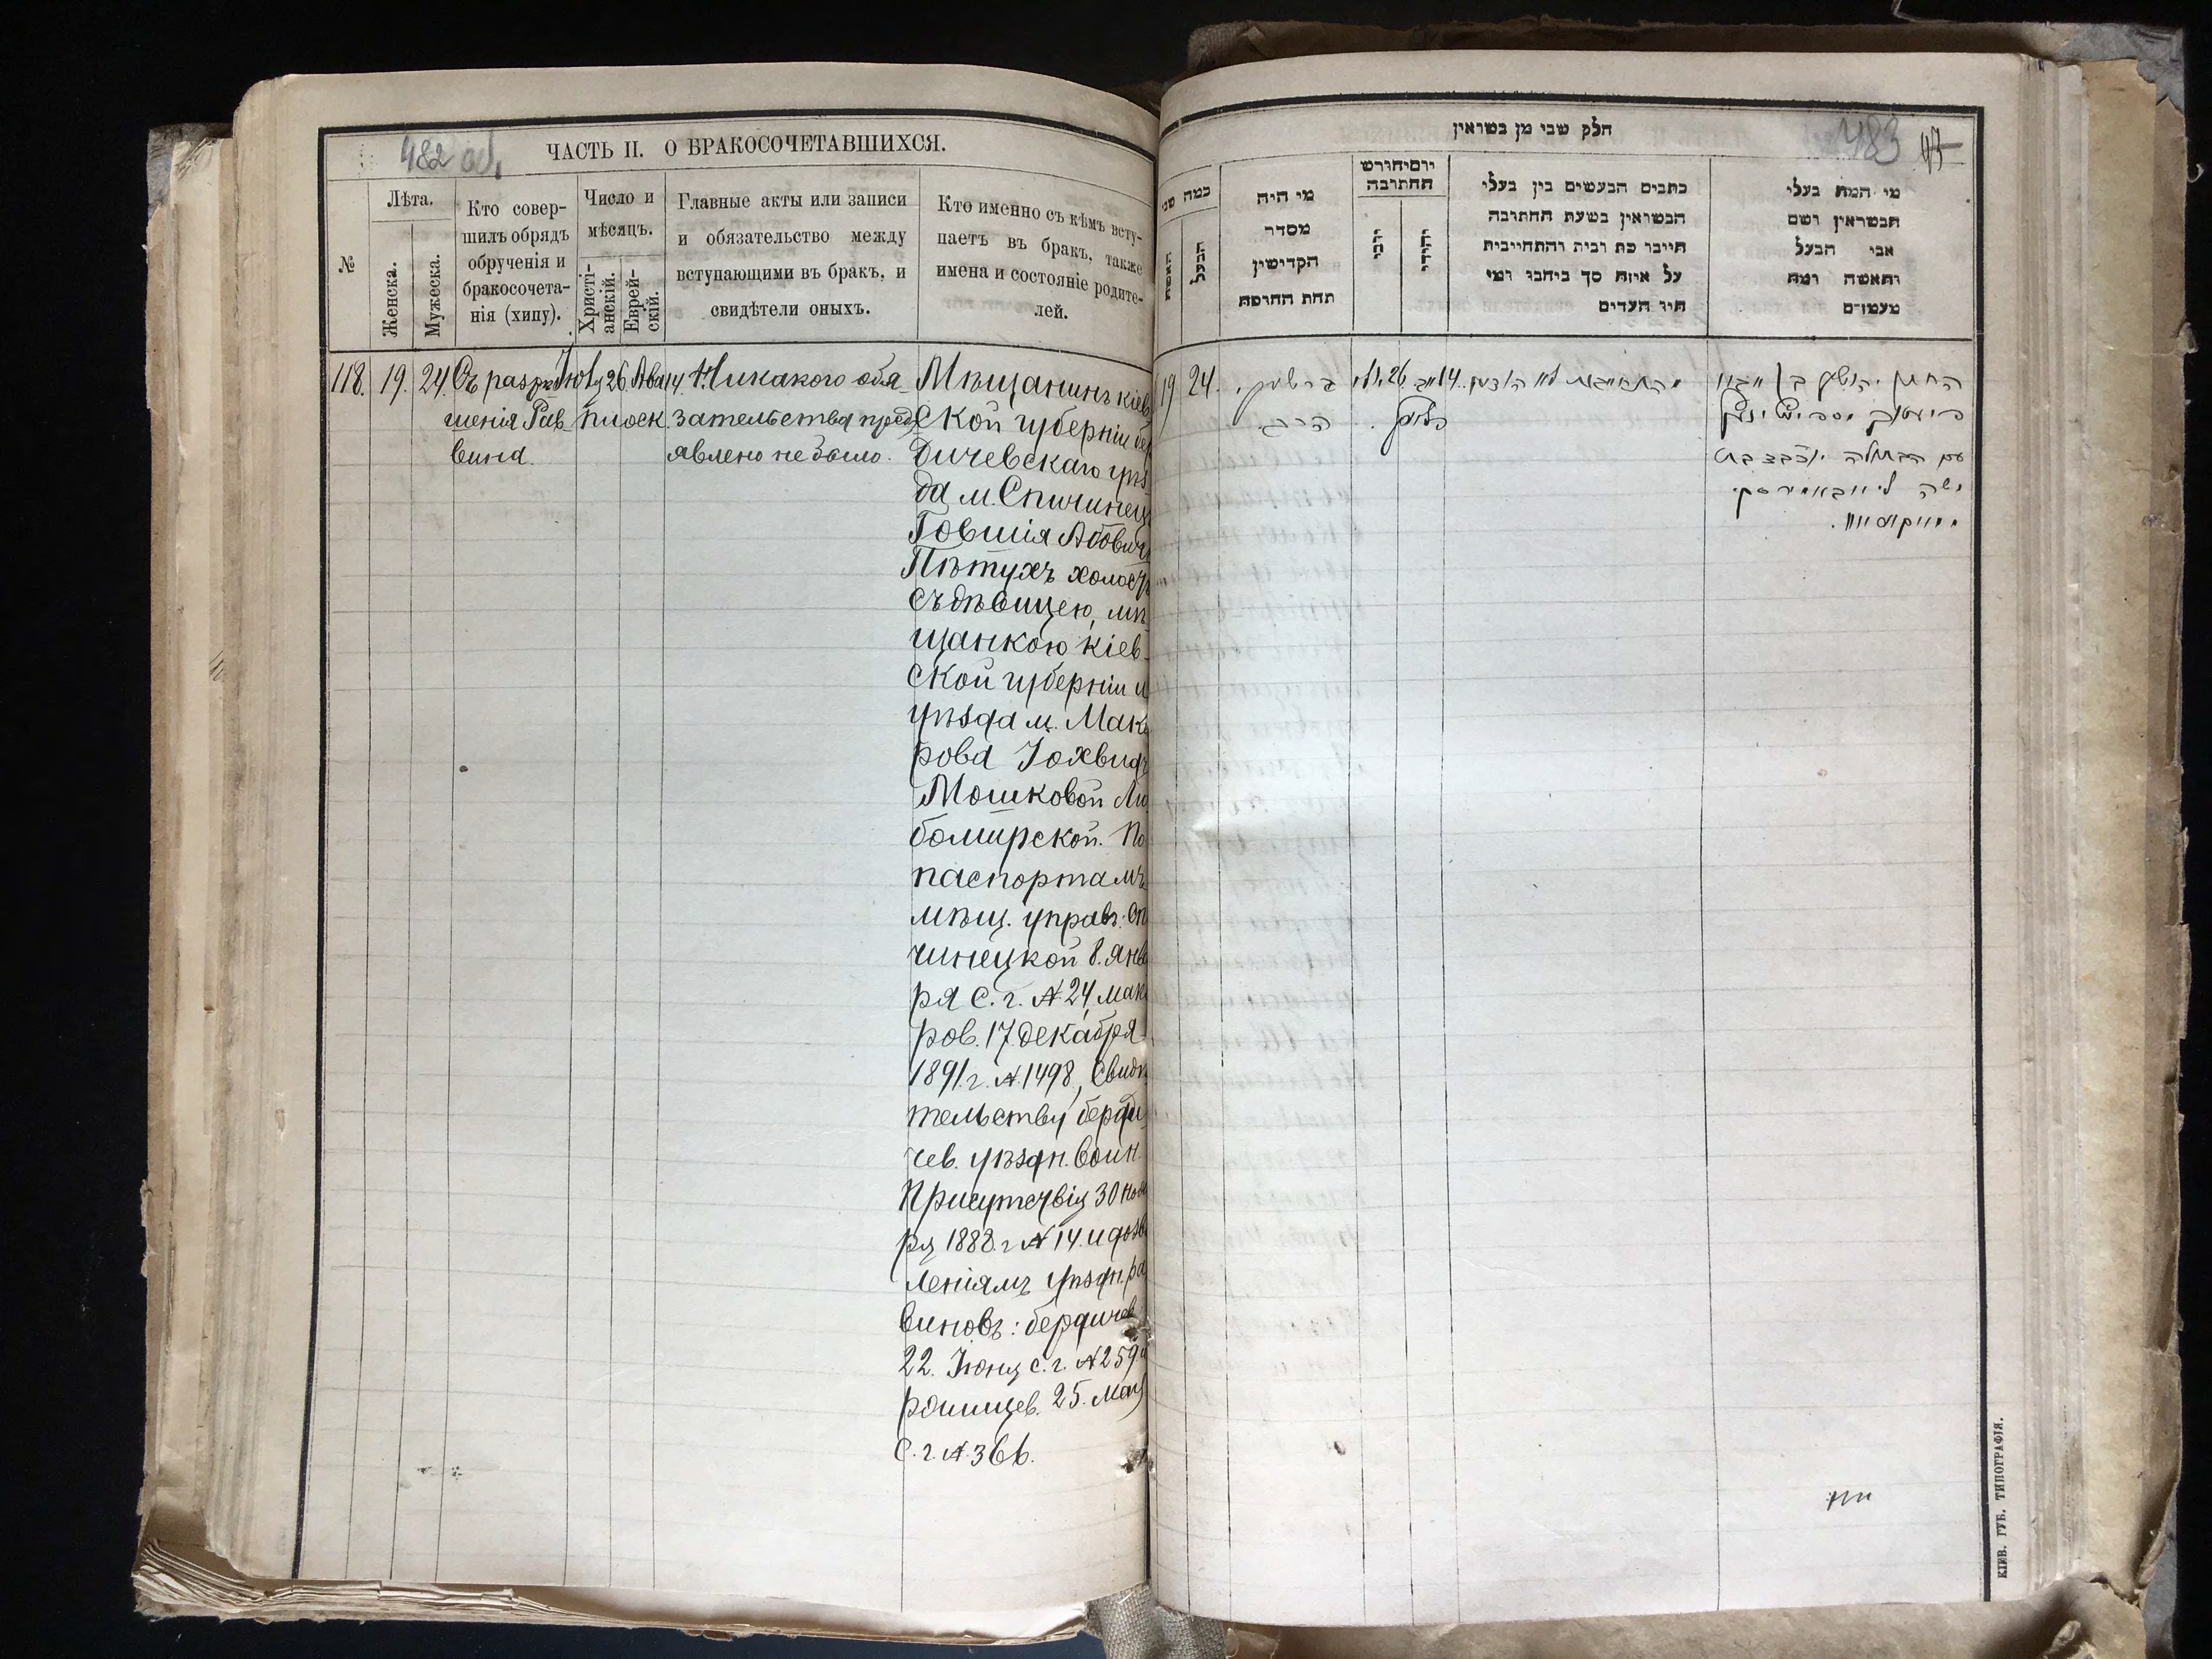 482 об.
ЧАСТЬ II. О БРАКОСОЧЕТАВШИХСЯ.
№
Лѣта.
Женска.
Мужеска.
Кто совер-
шилъ обрядъ
обрученія и
бракосочета-
нія (хипу).
Число и
мѣсяцъ.
Христі-
анскій.
Еврей-
скій.
Главные акты или записи
и обязательство между
вступающими въ бракъ, и
свидѣтели оныхъ.
Кто именно съ кѣмъ всту-
паетъ въ бракъ, также
имена и состояніе родите-
лей.
118. 19. 24.
Съ разрѣ-
шенія Рав-
вина.
Іюля 26. Ава 14.
Кіоск
Никакого обя-
зательства предъ
явлено не было.
Мѣщанинъ кіев
ской губерніи бер
дичевскаго уѣз
да м. Спичинец
Іовшія Абович
Пѣтухъ холостъ
съ дѣвицею, мѣ
щанкою кіев-
ской губерніи и
уѣзда м. Мака
рова Іохвидъ
Мошковой Лю
бомирской. По
паспортамъ
мѣщ. управъ: Спи
чинецкой 8. янва
ря с. г. № 24, мака
ров. 17. декабря
1891 г. № 1498, Свидѣ
тельству берди
чев. уѣздн. воин.
Присутствія 30 нояб
ря 1888 г № 14. и дозво
леніямъ уѣздн. ра
виновъ: бердичев
22. Іюня с. г. № 259 и
ромицев. 25. мая
с. г. № 366.
483
חלק שני מן נשואין
כמה שני
האשה
הבעל
מי היה
מסדר
הקדישין
תחת החופה
יום וחודש
החתונה
יוני
יהודי
כתבים הנעשים בין בעלי
הנשואין בשעת החתונה
חייבו כת ובית והתחייבות
על איזה סך ביחבו ומי
היו העדים
מי המה בעלי
הנשואין ושם
אבי הבעל
והאשה ומה
מעמדם
19 24.
ברשיון
הרב
יולי 26.
14
קיוסק
החתן יהושע בן
עם הבתולה יוכבד בת
משה ליובאמירסקי
КІЕВ. ГУБ. ТИПОГРАФІЯ.